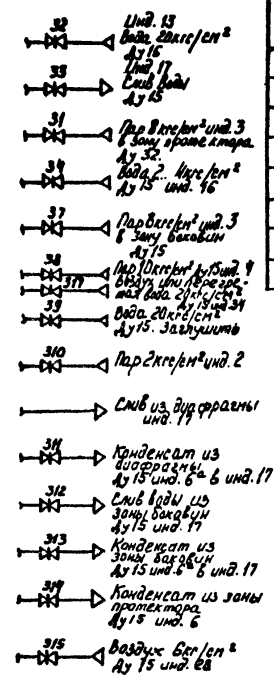 32
Инд. 13
Вода 20кгс/см²
Ду 15
33
Инд. 17
Слив воды
Ду 15
31
Пар 8кгс/см² инд. 3
в зону протектора
Ду 32.
34
Вода 2.. 4кгс/см²
Ду 15 инд. 16
37
Пар 8кгс/см² инд. 3
в зону боковин
Ду 15
38
Пар 10кгс/см² Ду 15 инд. 4
317
Воздух или перегре-
тая вода 20кгс/см²
Ду 15 инд. 34
39
Вода 20кгс/см²
Ду 15. Заглушить
310
Пар 2кгс/см² инд. 2
Слив из диафрагмы
инд. 17
311
Конденсат из
диафрагмы
Ду 15 инд. 6ᵃ в инд. 17
312
Слив воды из
зоны боковин
Ду 15 инд. 17
313
Конденсат из
зоны боковин
Ду 15 инд. 6ᵃ в инд. 17
314
Конденсат из зоны
протектора
Ду 15 инд. 6
315
Воздух 6кгс/см²
Ду 15 инд. 28